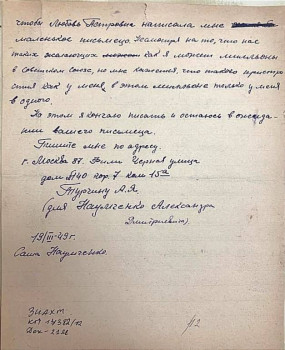 чтобы Любовь Петровна написала мне
маленькое письмецо. Несмотря на то, что нас
таких желающих как я может миллионы
в Советском Союзе, но мне кажется, что такого пристра
стия как у меня в этом миллионе только у меня
в одного.
На этом я кончаю писать и остаюсь в ожида-
нии вашего письмеца.
Пишите мне по адресу.
г. Москва 87. Фили Черная улица
дом №40 кор. 7 ком 15а
Тургину А.Я
(для Наумченко Александра
Дмитриевича).
19/III-49г.
Саша Наумченко.
ЗИДХМ
КП 14382/12
Док-2121